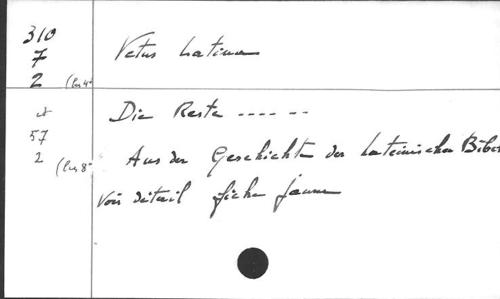 310
7
2 (in 4°
Vetus Latina
et
57
2 (in 8°
Die Reste ----- --
Aus der Geschichte der Lateinischen Bibel
Voir détail fiche jaune